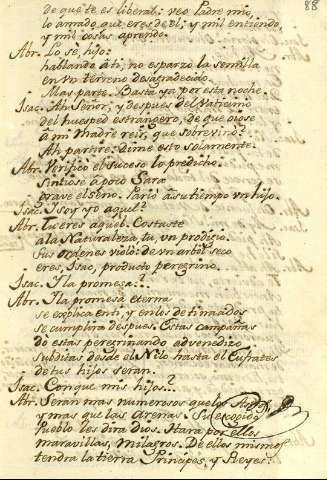 88
de què te es liberal: veo Padre mio
lo amado que eres de él; y mil entiendo
y mil cosas aprendo.
Abr. Lo sè, hijo:
hablando à ti, no esparzo la semilla
en vn terreno desagradecido.
Mas parte. Basta ya por esta noche.
Isac. Ah Señor, y despues del Vaticinio
del huesped estrangero, de que oiose
à mi Madre reir, què sobrevino?
Ah partire: dime esto solamente.
Abr. Verificò el suceso lo predicho.
Sintiose à poco Sara
grave el seno. Pariò à su tiempo vn hijo.
Isac. I soy yo aquel?
Abr. Tu eres aquel. Costaste
a la Naturaleza tu, vn prodigio.
Sus ordenes violò: de vn arbol seco
eres, Isac, producto peregrino.
Isac. I la promesa?..
Abr. I la promesa eterna
se explica en ti, y en los destinados
se cumplirà despues. Estas campañas
dò estas peregrinando advenedizo
subditas desde el Nilo hasta el Eufrates
de tus hijos seran.
Isac. Conque mis hijos?..
Abr. Seràn mas numerosos que los Astros,
y mas que las arenas. Su escogido
Pueblo les dirà dios. Harà por ellos
maravillas, milagros. De ellos mismos
tendrà la tierra Principes, y Reyes: